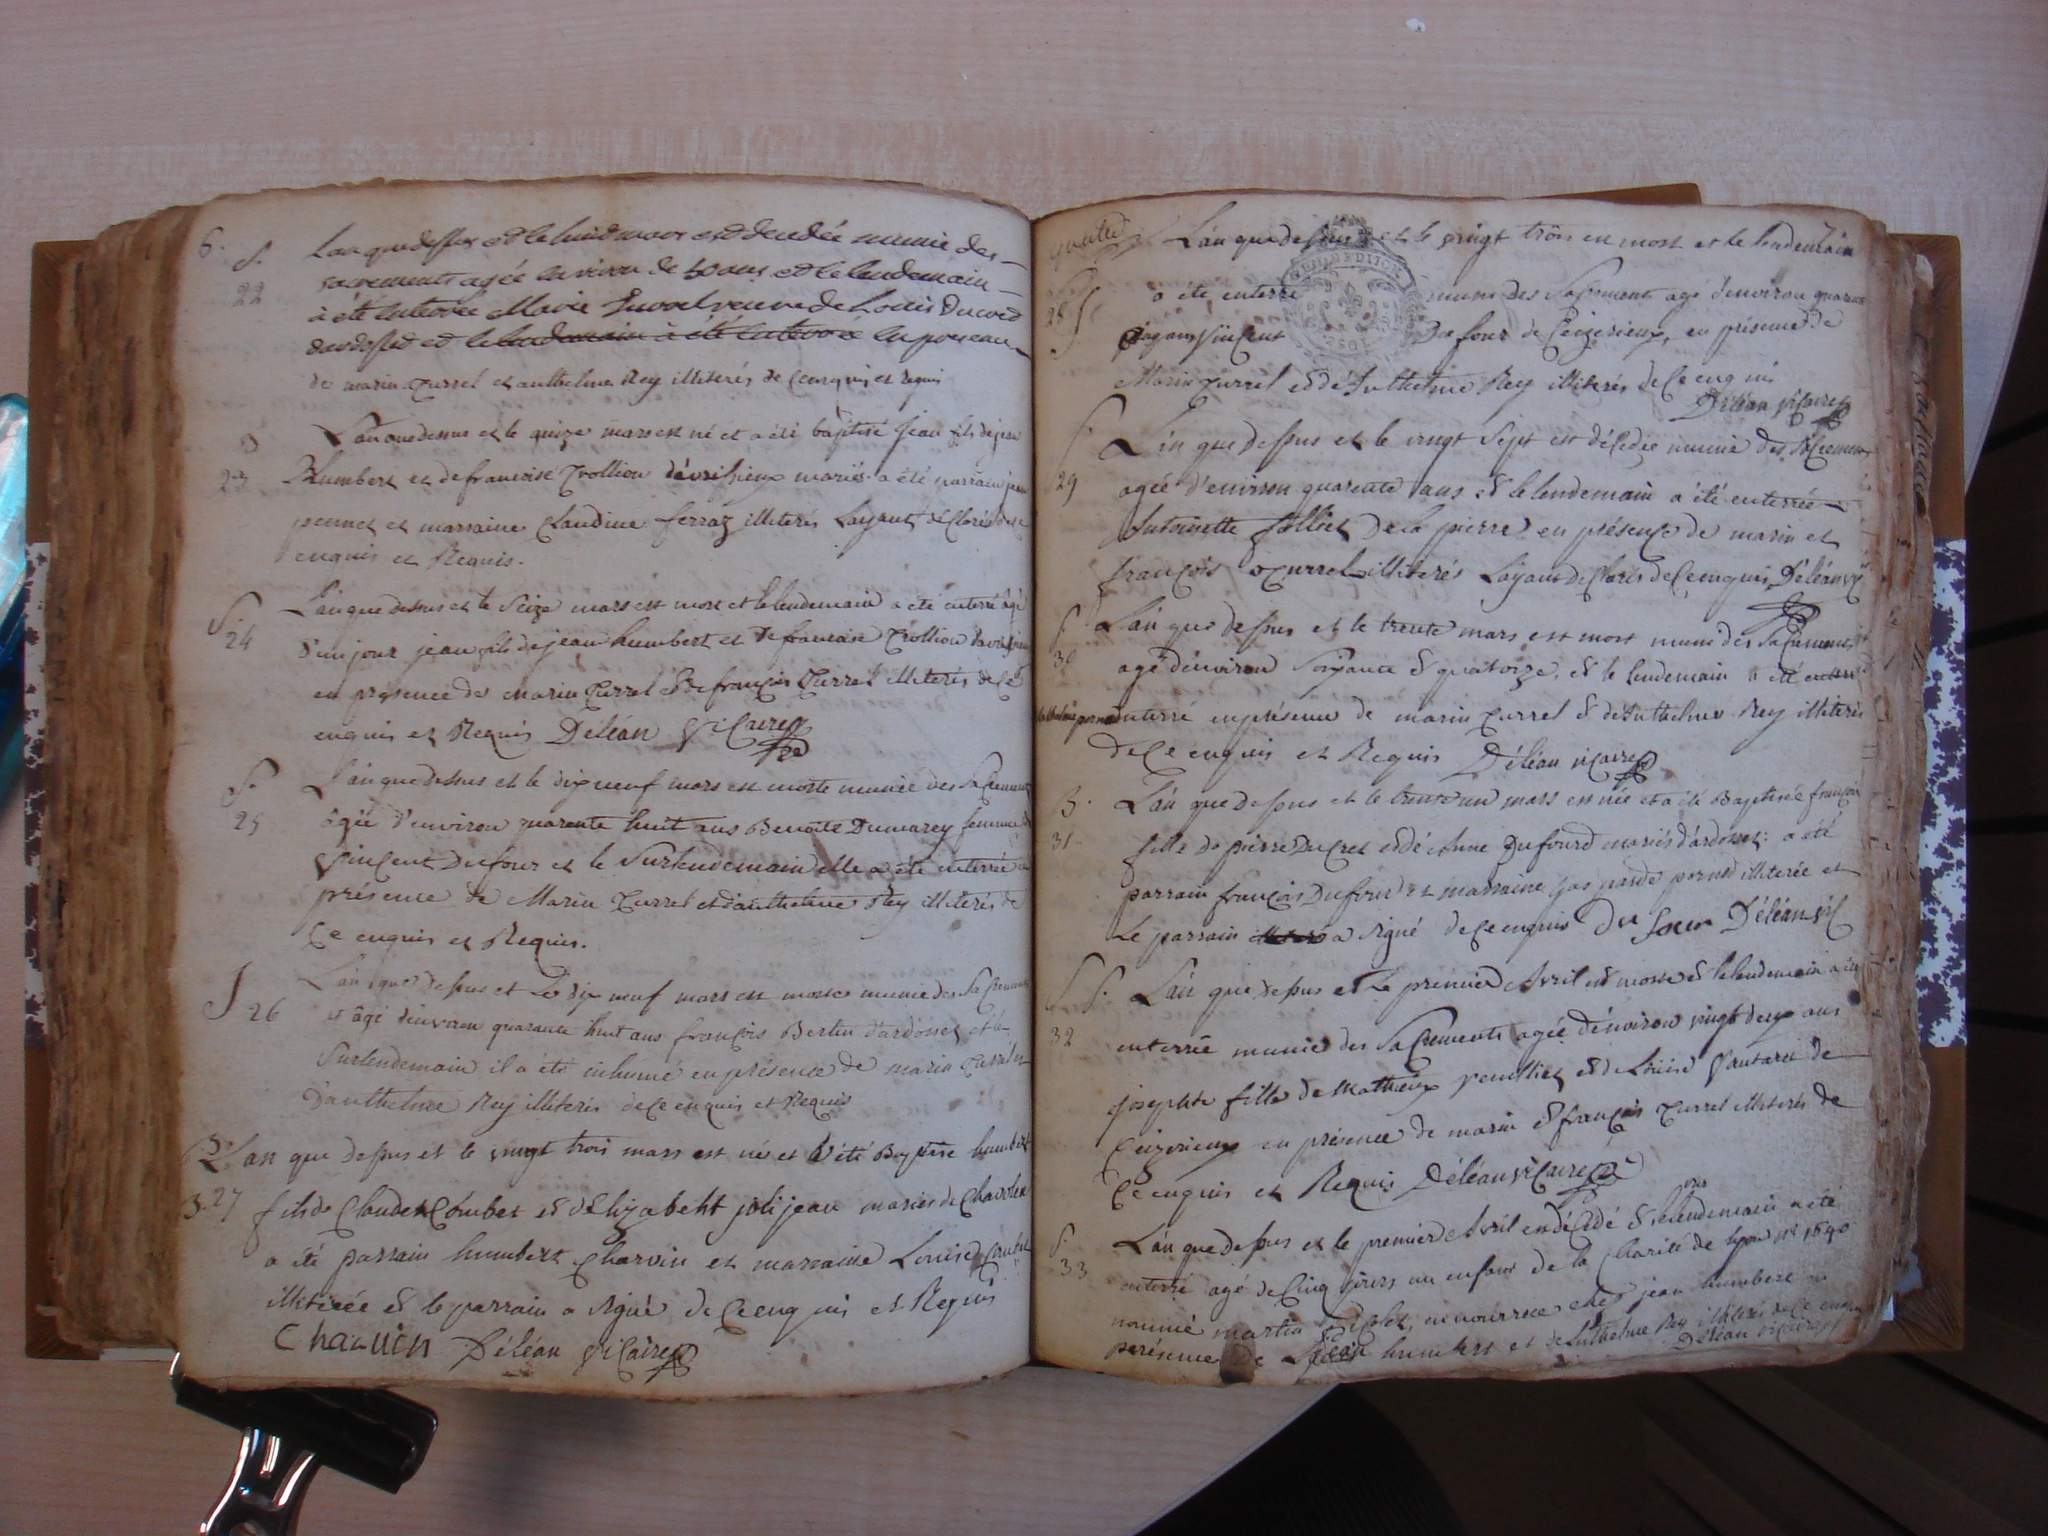 6.
S.
22
L'an que dessus et le huid mars est décédée munie des
sacrements agée environ de 50 ans et le lendemain
à été enterrée Marie veuve de Louis Ducret
dardosset et le lendemain à été enterré en presean
de marin Currel et anthelme Rey illiterés de ce enquis et requis
23
L'an que dessus et le quinze mars est né et a été baptisé jean fils de jean
humbert et de francoise Trollion mariés a été parrain jean
pernet et marraine Claudine ferraz illiterés layant déclaré de ce
enquis et Requis.
S.
24
L'an que dessus et le Seize mars est mort et le lendemain a été enterré âgé
d'un jour jean fils de jean humbert et de francoise Trollion
en presence de marin Currel & de françois Currel illiterés de ce
enquis et Requis Déléan Vicaire
S.
25
L'an que dessus et le dix neuf mars est morte munie des Sacrements
âgée d'environ quarente huit ans Benoite Dumarey femme de
Vincent Dufour et le Surlendemain elle a été enterrée en
présence de Marin Currel et d'anthelme Rey illiterés de
Ce enquis et Requis.
S
26
L'an que dessus et Le dix neuf mars est morte munie des Sacrements
et âgé d'environ quarante huit ans françois Bertin d'ardosset et le
Surlendemain il a été inhumé en présence de marin Currel et
D'anthelme Rey illiterés de Ce enquis et Requis
B. 27
L'an que dessus et le vingt trois mars est né et a été Baptisé humbert
fils de Claude Combet & d'Elizabeht joli jean mariés de Charolex
a été parrain humbert Charvin et marraine Louise Combet
illiterée & le parrain a signé de Ce enquis et Requis
Charuin Déléan Vicaire
quatre
L'an que dessus et le vingt trois en mort et le lendemain
28 S
a été enterré munis des Sacrements agé d'environ quarente
Cinq ans Vincent Dufour de Ceizerieux, en présence de
Marin Currel & d'Anthelme Rey illiterés de Ce enquis
Déléan Vicaire
S.
29
L'an que dessus et le vingt Sept est décédée munie des Sacremens
agée d'environ quarente ans & le lendemain a été enterrée
Antoinette falliet De la pierre en présence de marin et
françois Currel illiterés Layant déclaré de Ce enquis Déléan Vic
S.
30
L'an que dessus et le trente mars est mort muni des Sacremens
agé d'environ Soixante & quatorze, & le lendemain a été enterré
enterré en présence de marin Currel & d'Anthelme Rey illiterés
de Ce enquis et Requis Déléan vicaire
B.
31
L'an que dessus et le trente un mars est née et a été Baptisée françoise
fille de pierre Ducret & d'Anne Dufourd mariés d'ardosset: a été
parrain françois Dufour et marraine illiterée et
Le parrain a signé de Ce enquis Du four Déléan Vic
S.
32
L'an que dessus et Le premier Avril est morte & le lendemain a été
enterrée munie des Sacrements agée d'environ vingt deux ans
josephte fille de Mathieux & de Louise de
Ceizerieux en présence de marin & françois Currel illiterés de
Ce enquis et Requis Déléan Vicaire
S.
33
L'an que dessus et le premier Avril est décédé & le lendemain a été
enterré agé de Cinq jours un enfant de la Charité de lyon n° 1640
nommé martin Nicolet, en nourrice chez jean humbert en
présence de jean humbert et de Anthelme Rey illiterés de Ce enquis
Déléan vicaire